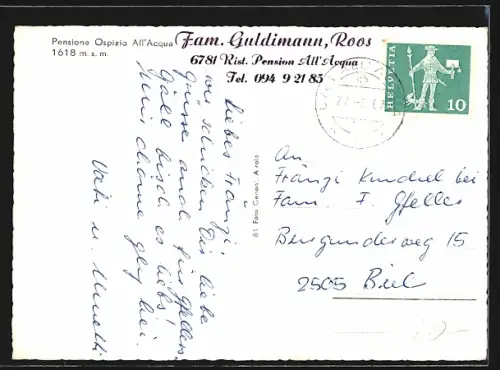 Pensione Ospizio All'Acqua
1618 m. s. m.
Fam. Guldimann, Roos
6781 Rist. Pension All'Acqua
Tel. 094 9 21 85
HELVETIA
10
Liebes Fränzi!
wir schicken Dir liebe
Grüsse und für Pfellers.
Gäll bisch es liebs!
hei.
Vati u. Muetti
81 Foto Airolo
An
Fränzi bei
Fam. F. Pfeller
Burgunderweg 15
2505 Biel